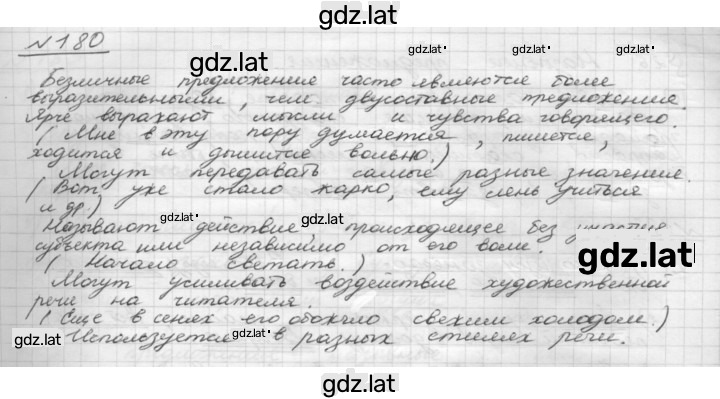 gdz.lat
№180
gdz.lat gdz.lat gdz.lat
Безличные предложения часто являются более
выразительными, чем двусоставные предложения.
Ярче выражают мысли и чувства говорящего.
gdz.lat gdz.lat
(Мне в эту пору думается, пишется,
ходится и дышится вольно.)
Могут передавать самые разные значения.
(Вот уже стало жарко, ему лень учиться
и др.)
gdz.lat gdz.lat
Называют действие, происходящее без участия
субъекта или независимо от его воли.
gdz.lat
(Начало светать.)
Могут усиливать воздействие художественной
речи на читателя.
(Еще в сенях его обожгло свежим холодом.)
gdz.lat gdz.lat gdz.lat
Используется в разных стилях речи.
gdz.lat